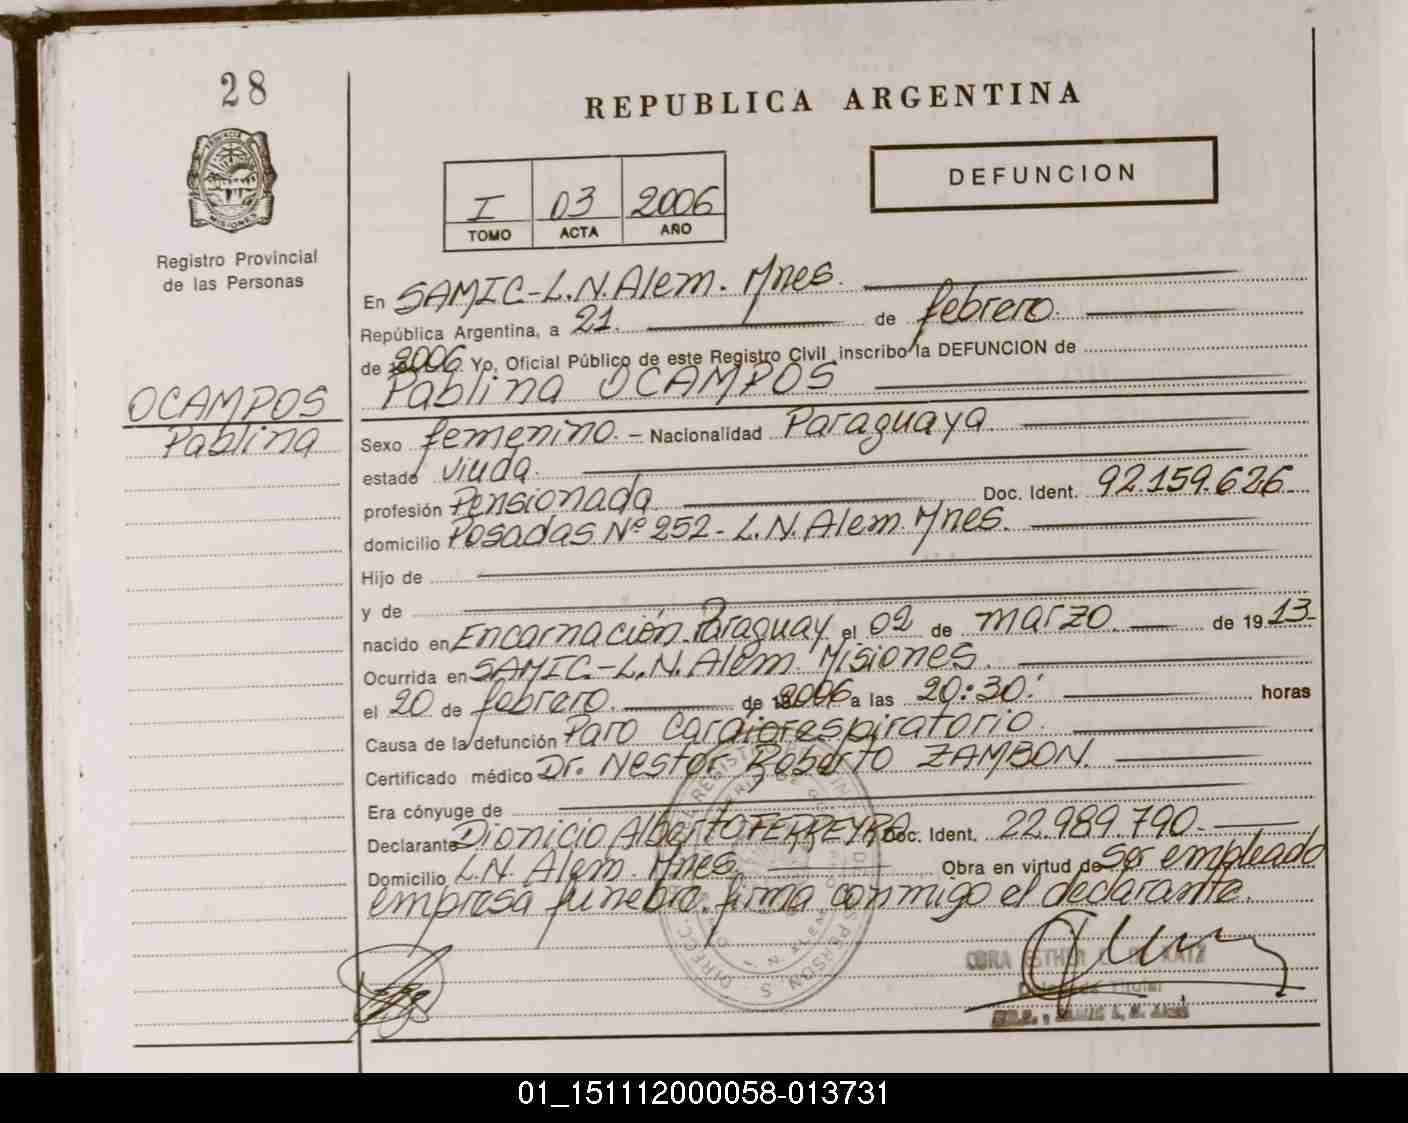 28
REPUBLICA ARGENTINA
DEFUNCION
I 03 2006
TOMO ACTA AÑO
PROVINCIA
MISIONES
Registro Provincial
de las Personas
En SAMIC-L.N.Alem. Mnes.
República Argentina, a 21. de febrero.
de 2006. Yo, Oficial Público de este Registro Civil inscribo la DEFUNCION de
Pablina OCAMPOS
OCAMPOS
Pablina
Sexo femenino. – Nacionalidad Paraguaya
estado viuda.
profesión Pensionada Doc. Ident. 92.159.626
domicilio Posadas Nº 252 - L.N. Alem. Mnes.
Hijo de
y de
nacido en Encarnación Paraguay el 02 de marzo. de 1913-
Ocurrida en SAMIC-L.N. Alem. Misiones.
el 20 de febrero. de 2006 a las 20:30' horas
Causa de la defunción Paro Cardiorespiratorio.
Certificado médico Dr. Nestor Roberto ZAMBON.
Era cónyuge de
Declarante Dionicio Alberto FERREYRA Doc. Ident. 22.989.790.
Domicilio L.N. Alem. Mnes. Obra en virtud de ser empleado
empresa funebre. firma conmigo el declarante.
01_151112000058-013731